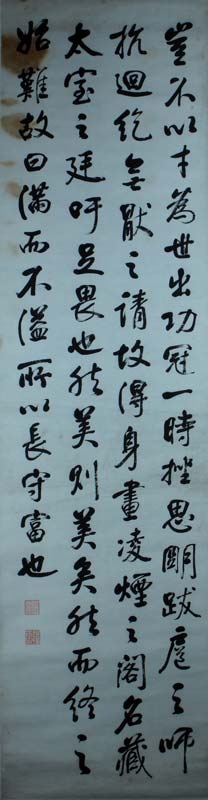 豈不以才為世出功冠一時挫思明跋扈之師
抗迴紇無猒之請故得身畫凌煙之閣名藏
太室之廷吁足畏也然美則美矣然而終之
始難故曰滿而不溢所以長守富也